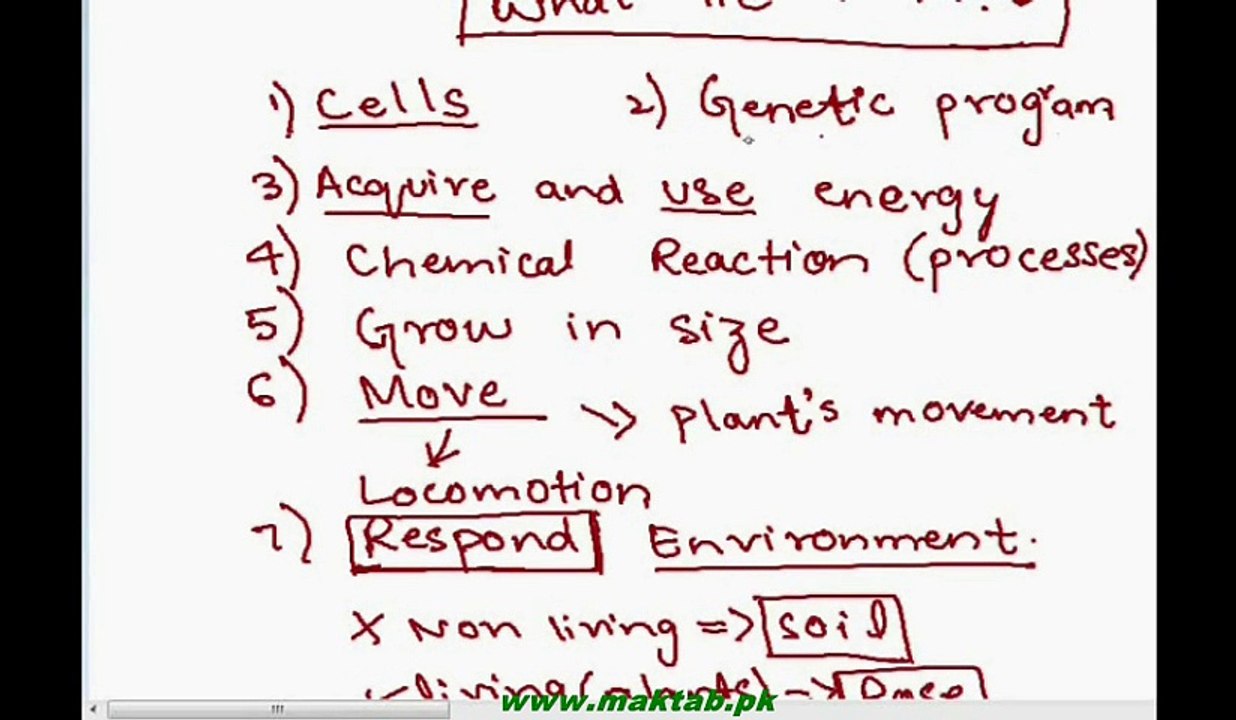 What
1) Cells 2) Genetic program
3) Acquire and use energy
4) Chemical Reaction (processes)
5) Grow in size
6) Move → plant's movement
↓
Locomotion
7) Respond Environment.
X Non living => soil
living (plants) →
www.maktab.pk